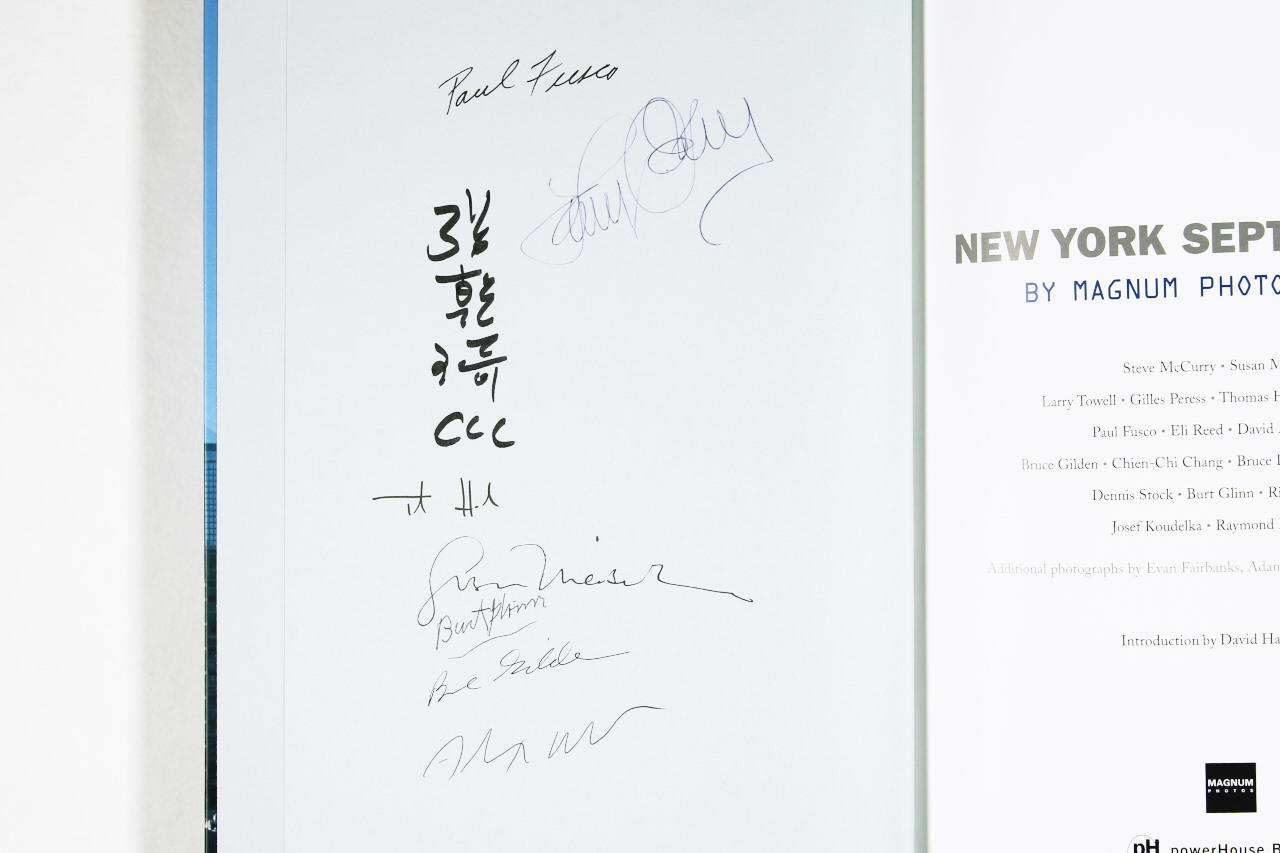 Paul Fusco
CCC
Susan Meiselas
Burt Glinn
Bruce Gilden
NEW YORK SEPT
BY MAGNUM PHOTO
Steve McCurry • Susan M
Larry Towell • Gilles Peress • Thomas H
Paul Fusco • Eli Reed • David A
Bruce Gilden • Chien-Chi Chang • Bruce
Dennis Stock • Burt Glinn • Ri
Josef Koudelka • Raymond
Additional photographs by Evan Fairbanks, Adam
Introduction by David Ha
MAGNUM
PHOTOS
pH powerHouse B